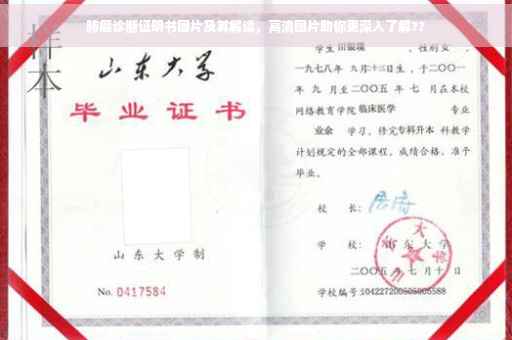 肺癌诊断证明书图片及其解读，高清图片助你更深入了解??
样本
山东大学
毕业证书
山东大学制
No. 0417584
学生 田银瑞 ，性别 女 ，
一九七八年 九月十三日生，于二〇〇一
年 九 月至二〇〇五 年 七 月在本校
网络教育学院 临床医学 专业
业余 学习，修完 专科升本 科教学
计划规定的全部课程，成绩合格，准予
毕业。
校 长：
学 校：山东大学
二〇〇五年 七 月 十 日
学校编号:104227200505005588